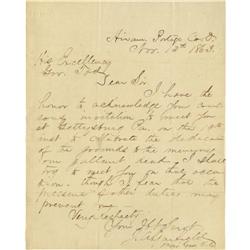 Hiram Portage Co. O.
Nov. 12th 1863.
His Excellency
Gov. Tod,
Dear Sir
I have the
honor to acknowledge your
invitation to meet you
at Gettysburg Pa. on the 19th
inst to the dedication
of the grounds to the memory
our gallant dead. I shall
try to meet you on that
though I fear that the
pressure of other duties may
prevent me.
Very respectfully
Your